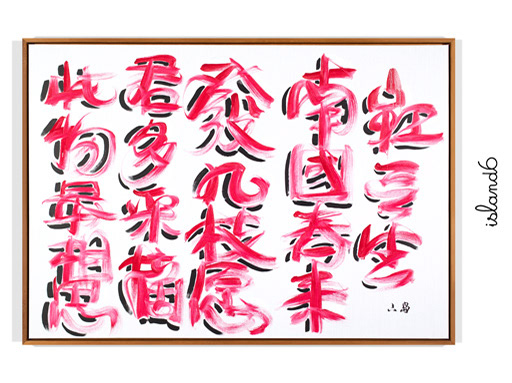 紅豆生
南國春来
發几枝愿
君多采擷
此物最相思
六島
island6